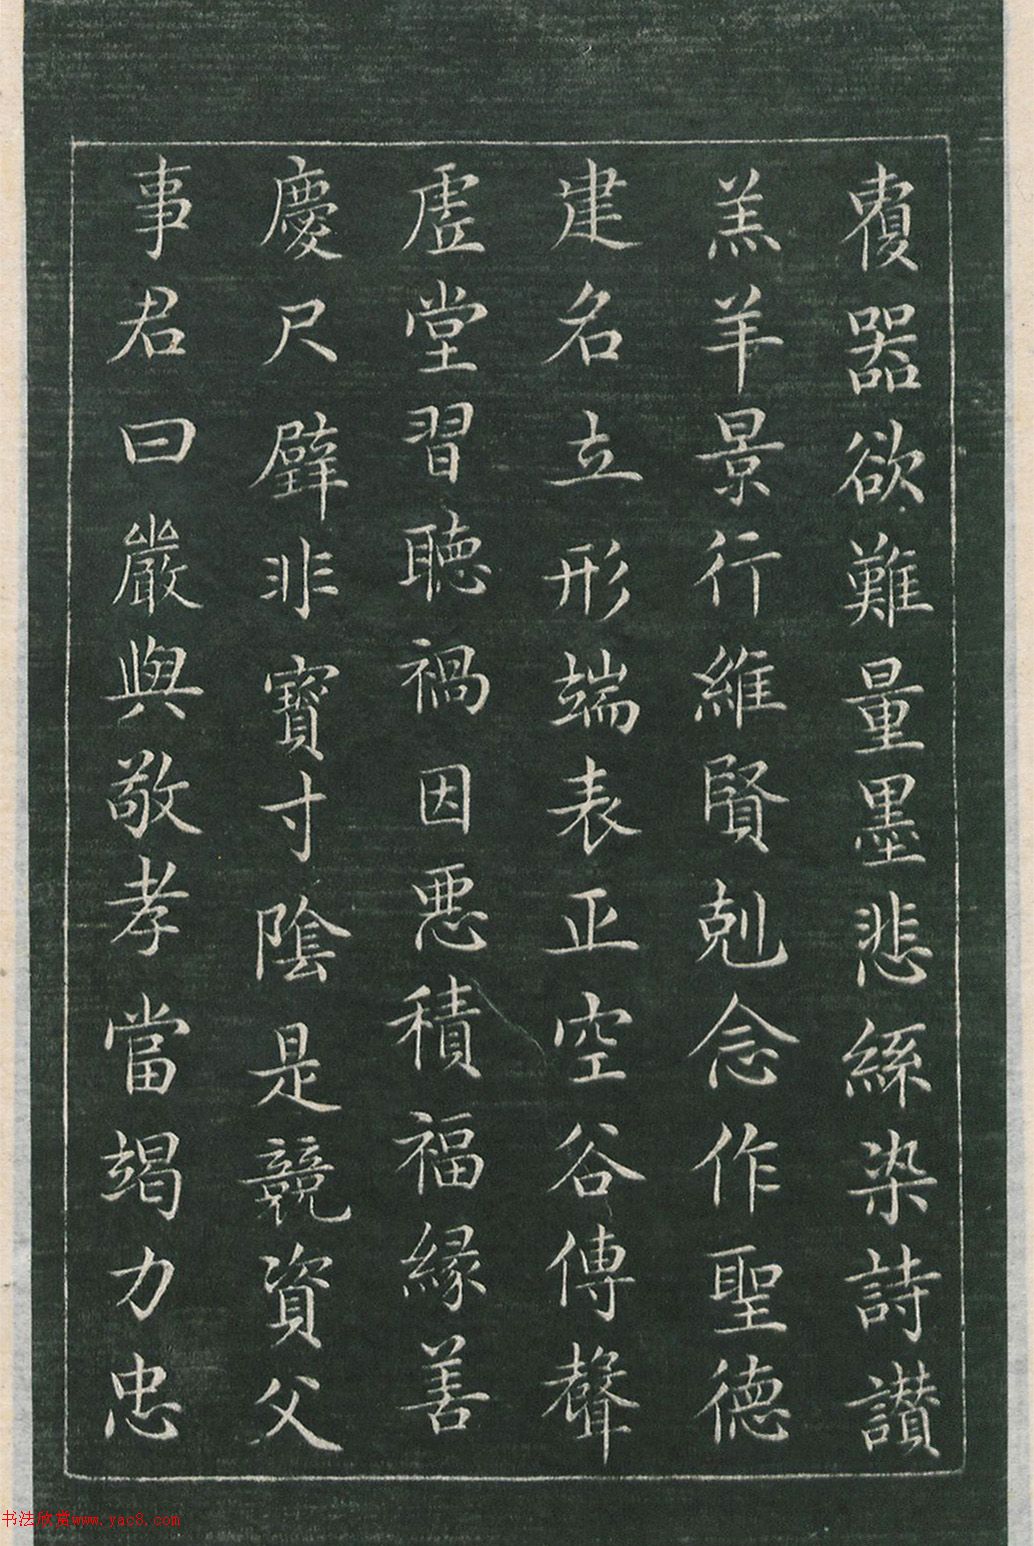 覆器欲難量墨悲絲染詩讃
羔羊景行維賢剋念作聖德
建名立形端表正空谷傳聲
虛堂習聽禍因惡積福緣善
慶尺璧非寶寸陰是競資父
事君曰嚴與敬孝當竭力忠
书法欣赏www.yac8.com